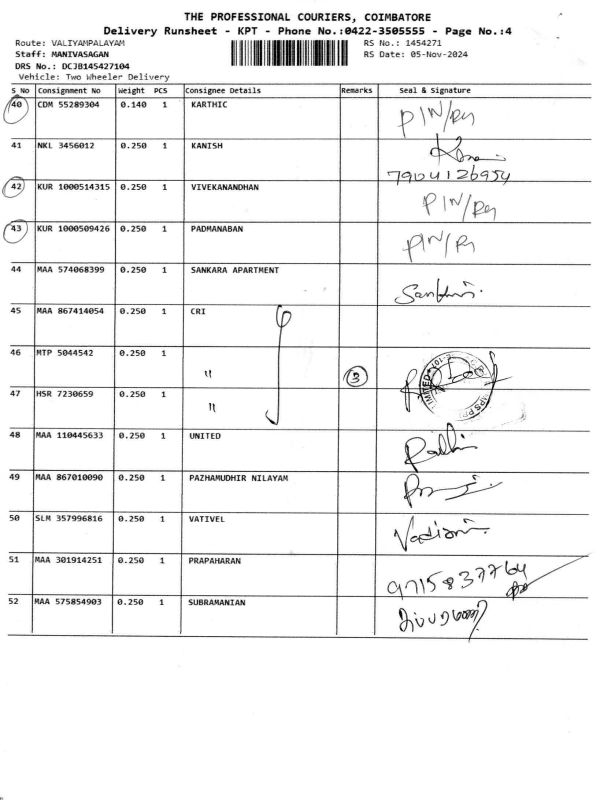 THE PROFESSIONAL COURIERS, COIMBATORE
Delivery Runsheet - KPT - Phone No.:0422-3505555 - Page No.:4
Route: VALIYAMPALAYAM RS No.: 1454271
Staff: MANIVASAGAN RS Date: 05-Nov-2024
DRS No.: DCJB145427104
Vehicle: Two Wheeler Delivery
S No Consignment No Weight PCS Consignee Details Remarks Seal & Signature
40 CDM 55289304 0.140 1 KARTHIC PIN/Rg
41 NKL 3456012 0.250 1 KANISH
7904126954
42 KUR 1000514315 0.250 1 VIVEKANANDHAN PIN/Rg
43 KUR 1000509426 0.250 1 PADMANABAN PIN/R
44 MAA 574068399 0.250 1 SANKARA APARTMENT
45 MAA 867414054 0.250 1 CRI
46 MTP 5044542 0.250 1 " 3
47 HSR 7230659 0.250 1 "
48 MAA 110445633 0.250 1 UNITED
49 MAA 867010090 0.250 1 PAZHAMUDHIR NILAYAM
50 SLM 357996816 0.250 1 VATIVEL
51 MAA 301914251 0.250 1 PRAPAHARAN 9715837764
52 MAA 575854903 0.250 1 SUBRAMANIAN